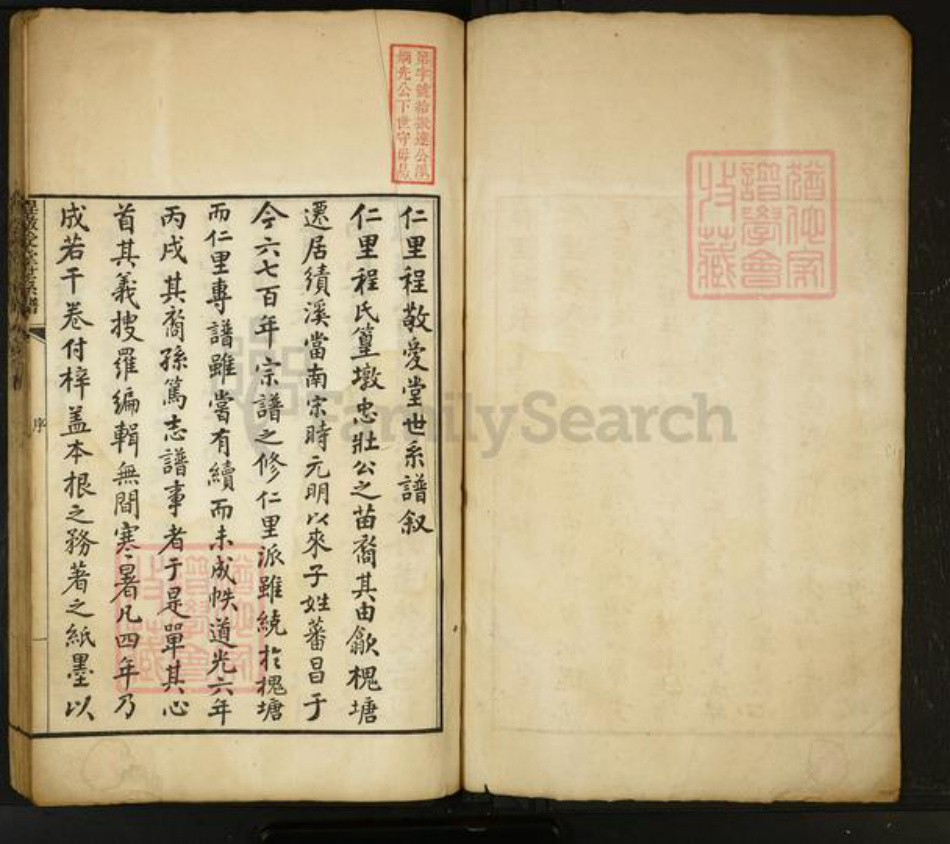 猶他家
譜學會
收藏
仁里程敬愛堂世系譜叙
仁里程氏篁墩忠壯公之苗裔其由歙槐塘
遷居績溪當南宋時元明以來子姓蕃昌于
今六七百年宗譜之修仁里派雖統於槐塘
而仁里專譜雖嘗有續而未成帙道光六年
丙戌其裔孫篤志譜事者于是單其心
首其義搜羅編輯無間寒暑凡四年乃
成若干卷付梓蓋本根之務著之紙墨以
序
猶他家
譜學會
收藏
FamilySearch